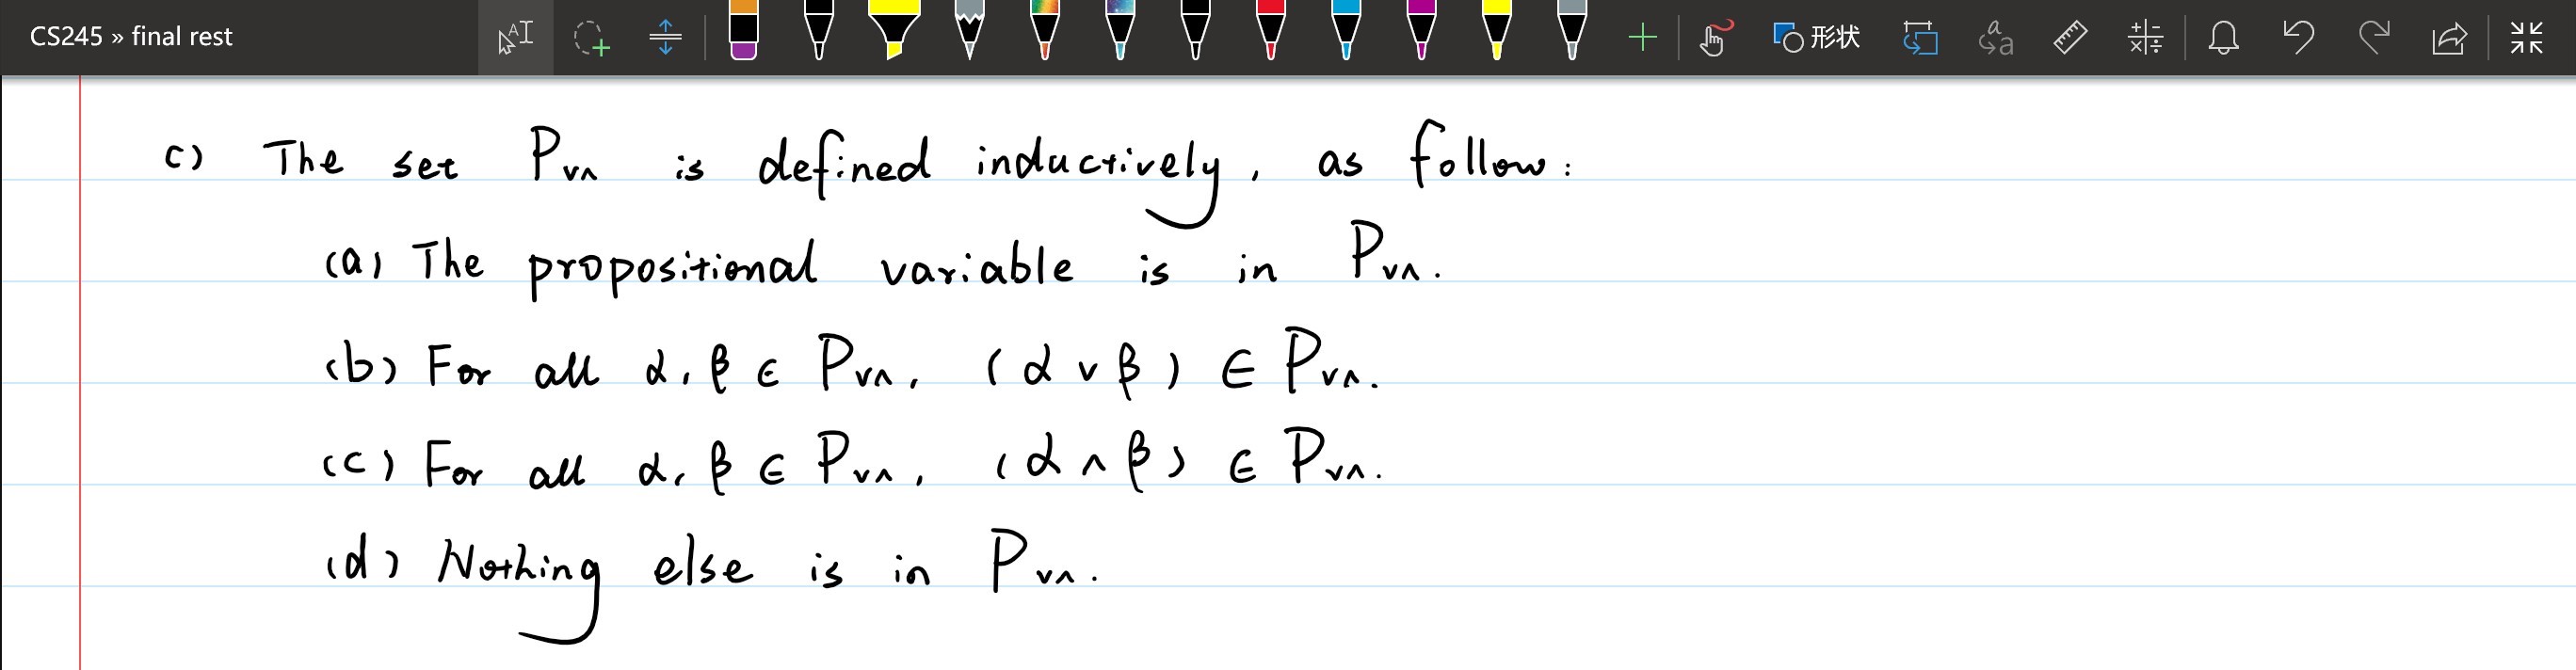 CS245 » final rest
形状
c) The set P∨∧ is defined inductively, as follow:
(a) The propositional variable is in P∨∧.
(b) For all α, β ∈ P∨∧, (α ∨ β) ∈ P∨∧.
(c) For all α, β ∈ P∨∧, (α ∧ β) ∈ P∨∧.
(d) Nothing else is in P∨∧.